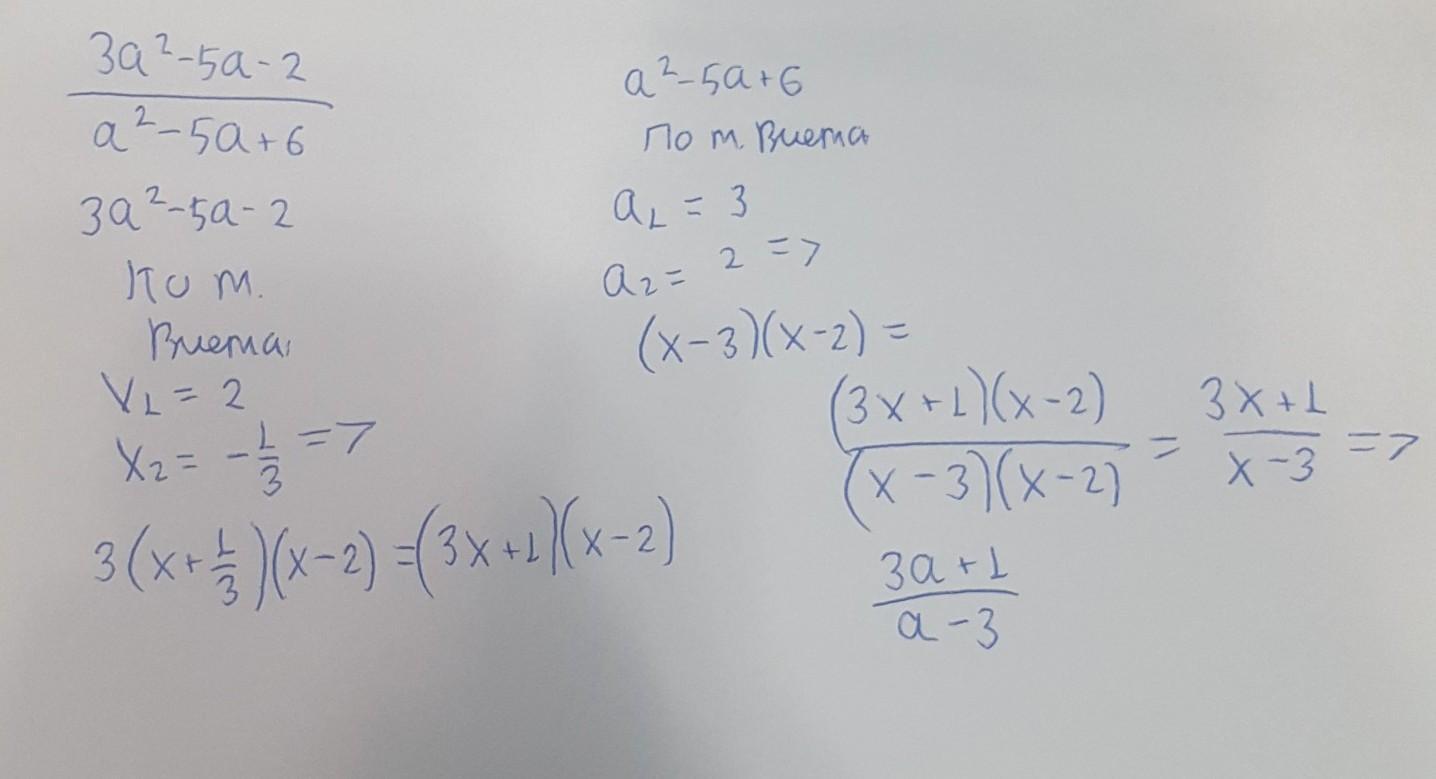 3a²-5a-2
a²-5a+6
3a²-5a-2
По т.
Виета
x₁ = 2
x₂ = -1/3 =>
3(x+1/3)(x-2) = (3x+1)(x-2)
a²-5a+6
По т. Виета
a₁ = 3
a₂ = 2 =>
(x-3)(x-2) =
(3x+1)(x-2)/(x-3)(x-2) = 3x+1/x-3 =>
3a+1
a-3